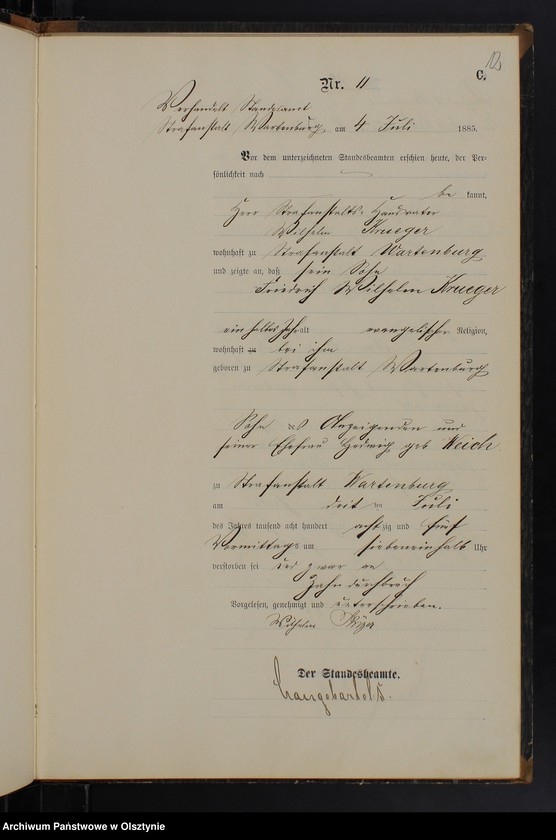 10
C.
Nr. 11
Verhandelt Standesamt
Strafanstalt Wartenburg, am 4 Juli 1885.
Vor dem unterzeichneten Standesbeamten erschien heute, der Per-
sönlichkeit nach
be kannt,
Herr Strafanstalts-
Wilhelm Krueger
wohnhaft zu Strafanstalt Wartenburg
und zeigte an, daß sein Sohn
Friedrich Wilhelm Krueger
ein halbes Jahr alt evangelischer Religion,
wohnhaft zu bei ihm
geboren zu Strafanstalt Wartenburg
Sohn des Anzeigenden und
seiner Ehefrau Hedwig geb Weich
zu Strafanstalt Wartenburg
am Juli
des Jahres tausend acht hundert achtzig und fünf
Vormittags um siebeneinhalb Uhr
verstorben sei und zwar an
Zahndurchbruch
Vorgelesen, genehmigt und unterschrieben.
Wilhelm
Der Standesbeamte.
Archiwum Państwowe w Olsztynie